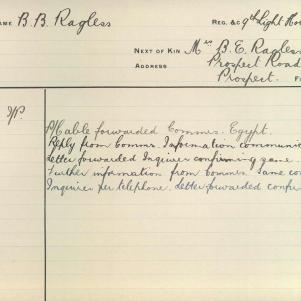 NAME B. B. Ragless REG. &c 9th Light Ho
NEXT OF KIN Mrs B. E. Ragless
ADDRESS Prospect Road
Prospect.
P/Cable forwarded Commrs. Egypt.
Reply from Commrs. Information communic
letter forwarded Inquirer confirming same
Further information from Commrs. same co
Inquirer per telephone. Letter forwarded confir